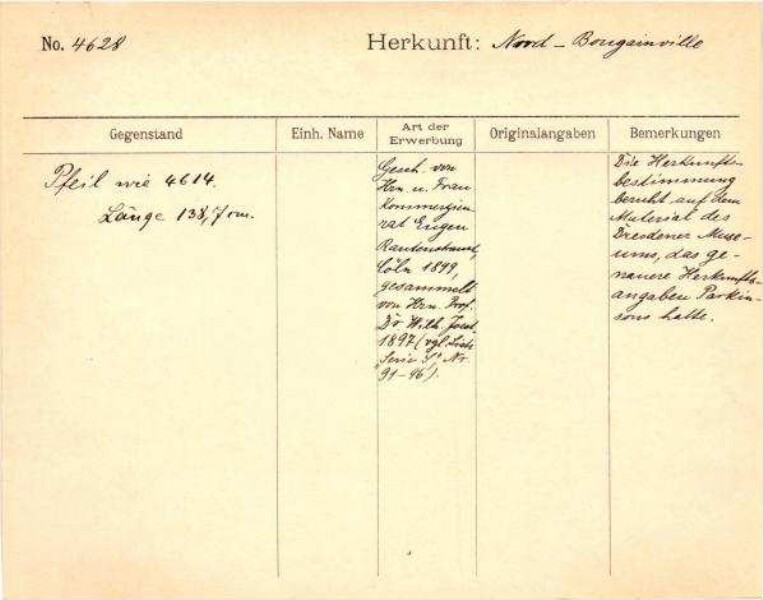 No. 4628
Herkunft: Nord - Bougainville
Gegenstand
Einh. Name
Art der
Erwerbung
Originalangaben
Bemerkungen
Pfeil wie 4614.
Länge 138,7 cm.
Gesch. von
Hrn. u. Frau
Kommerzien-
rat Eugen
Rautenstrauch,
Cöln 1899,
gesammelt
von Hrn. Prof.
Dr. Wilh. Joest
1897 (vgl. Liste
"Serie S", Nr.
91-46).
Die Herkunfts-
bestimmung
beruht auf dem
Material des
Dresdener Muse-
ums, das ge-
nauere Herkunfts-
angaben Parkin-
sons hatte.